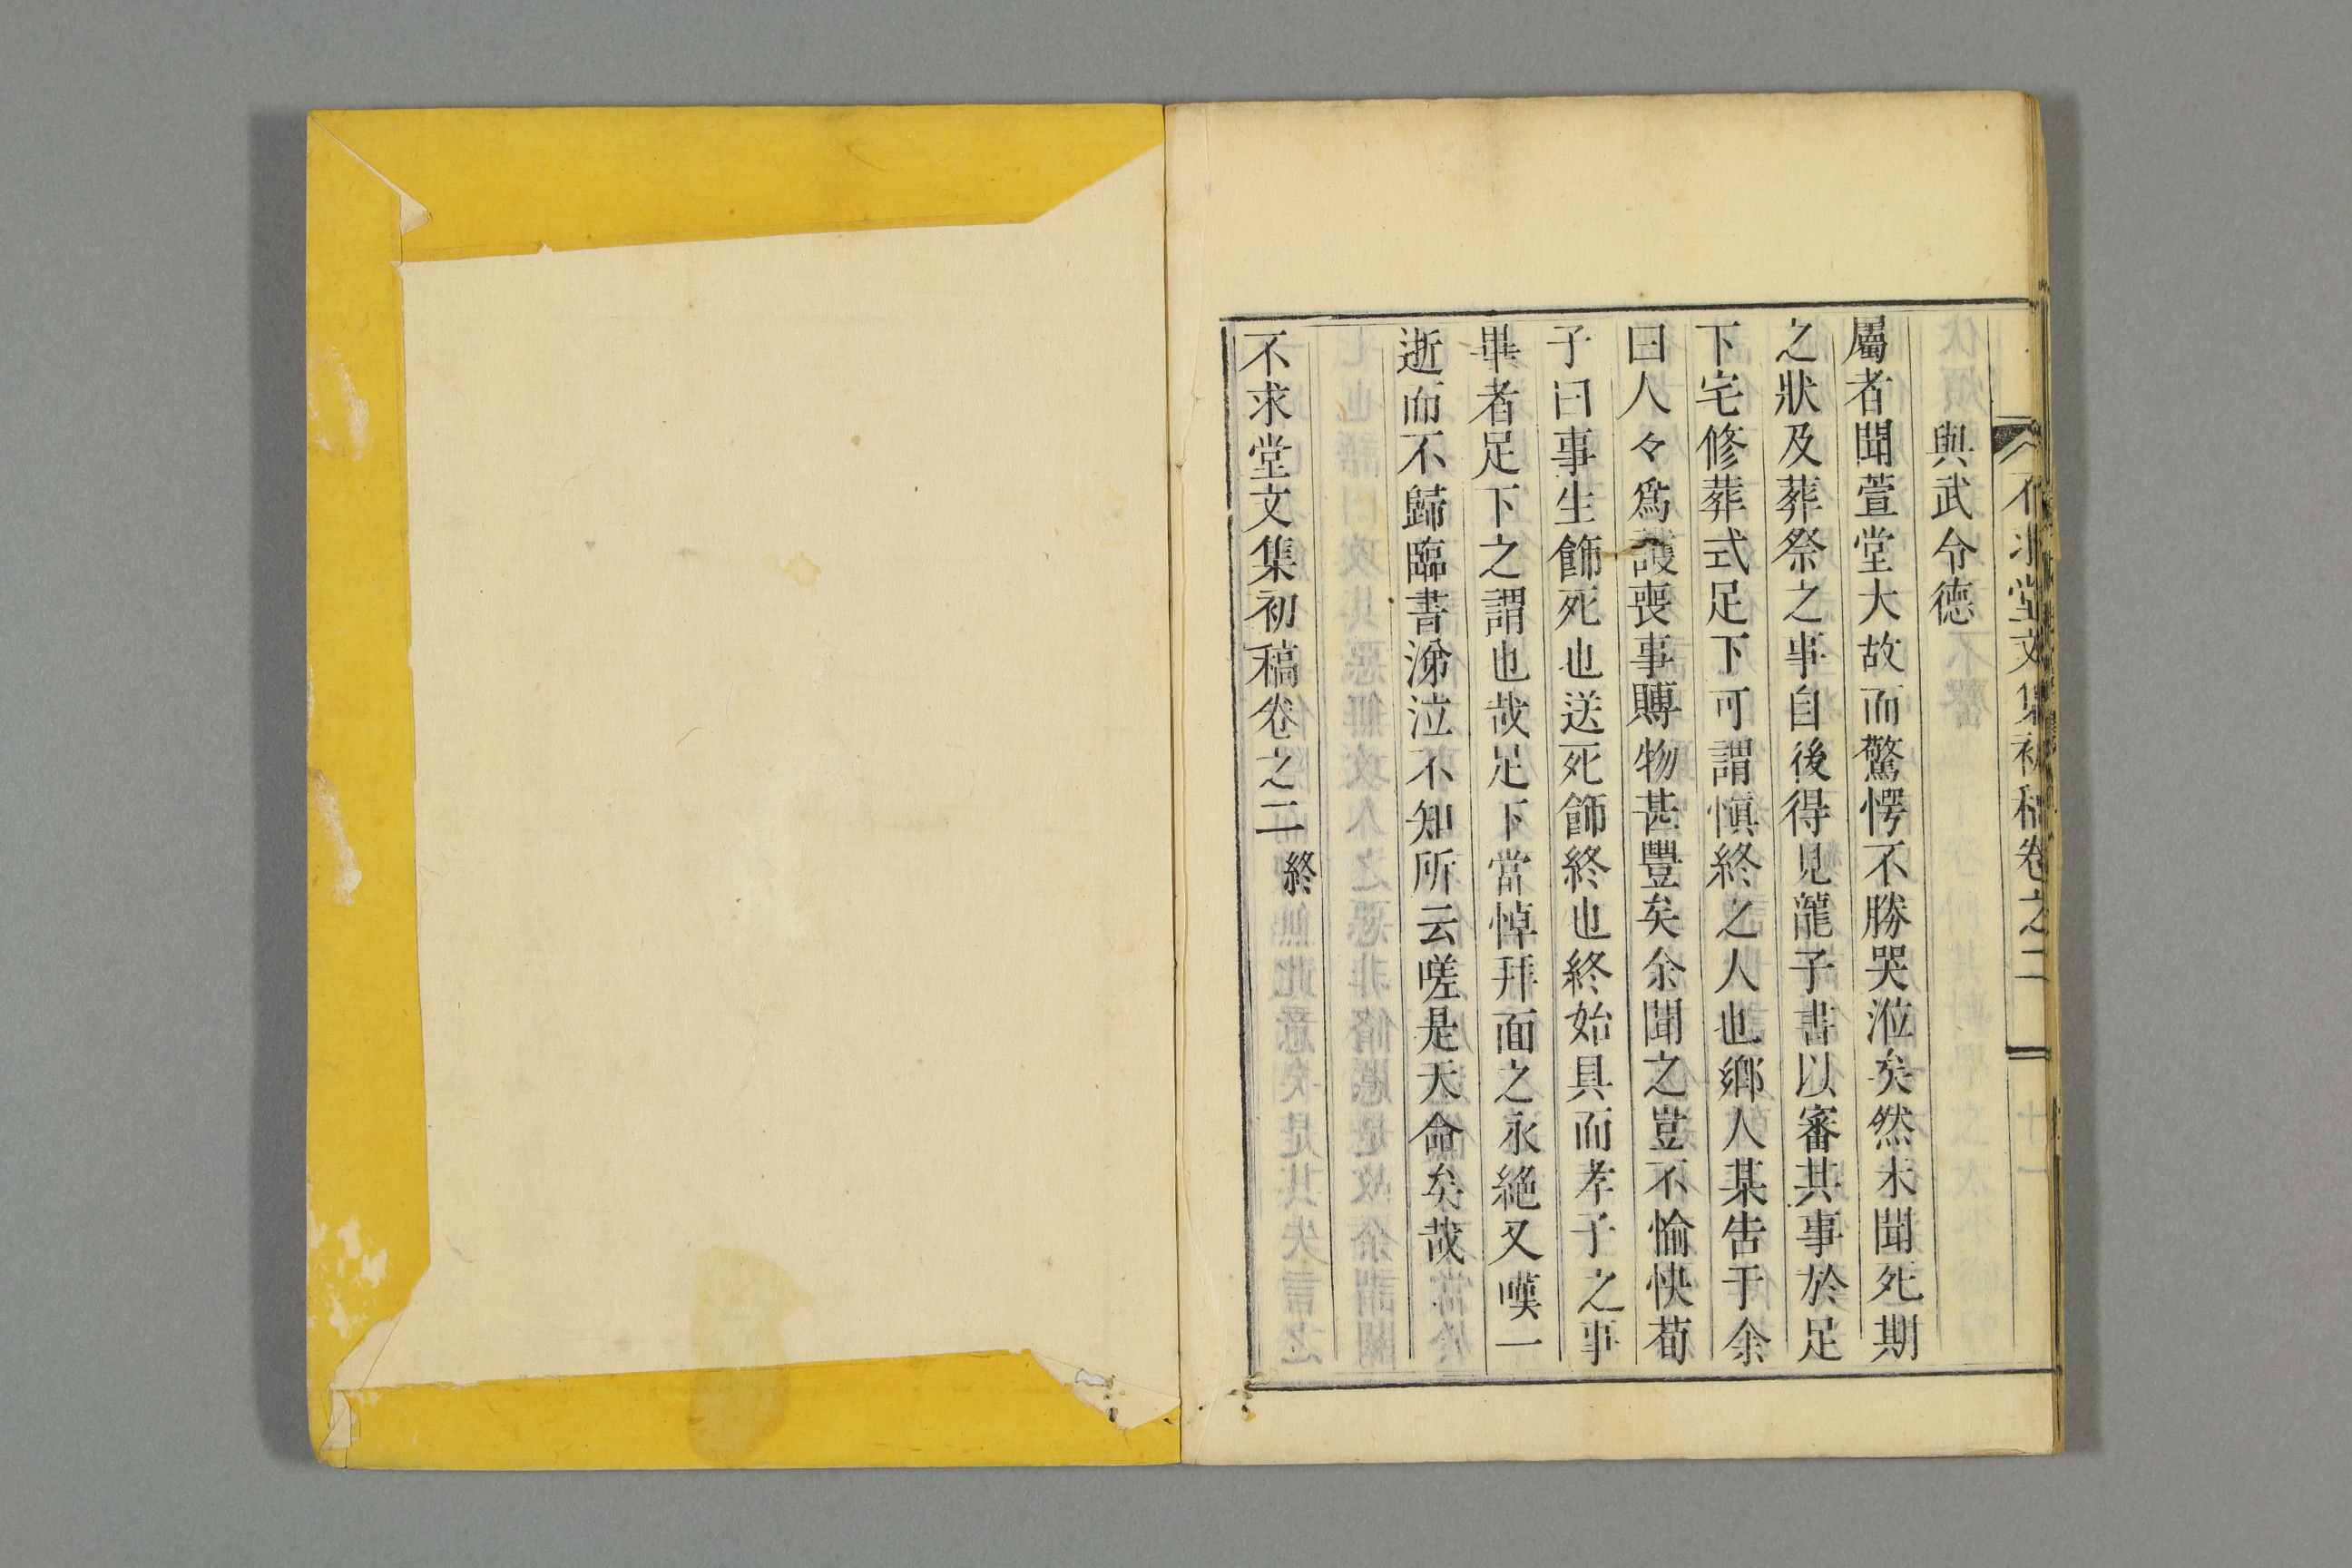 不求堂文集初稿卷之二
與武令德
屬者聞萱堂大故而驚愕不勝哭泣矣然未聞死期
之狀及葬祭之事自後得見龍子書以審其事於足
下宅修葬式足下可謂愼終之人也鄉人某告于余
曰人々爲護喪事賻物甚豐矣余聞之豈不愉快荀
子曰事生飾死也送死飾終也終始具而孝子之事
畢者足下之謂也哉足下當悼拜面之永絕又嘆一
逝而不歸臨書涕泣不知所云嗟是天命矣哉
不求堂文集初稿卷之二終